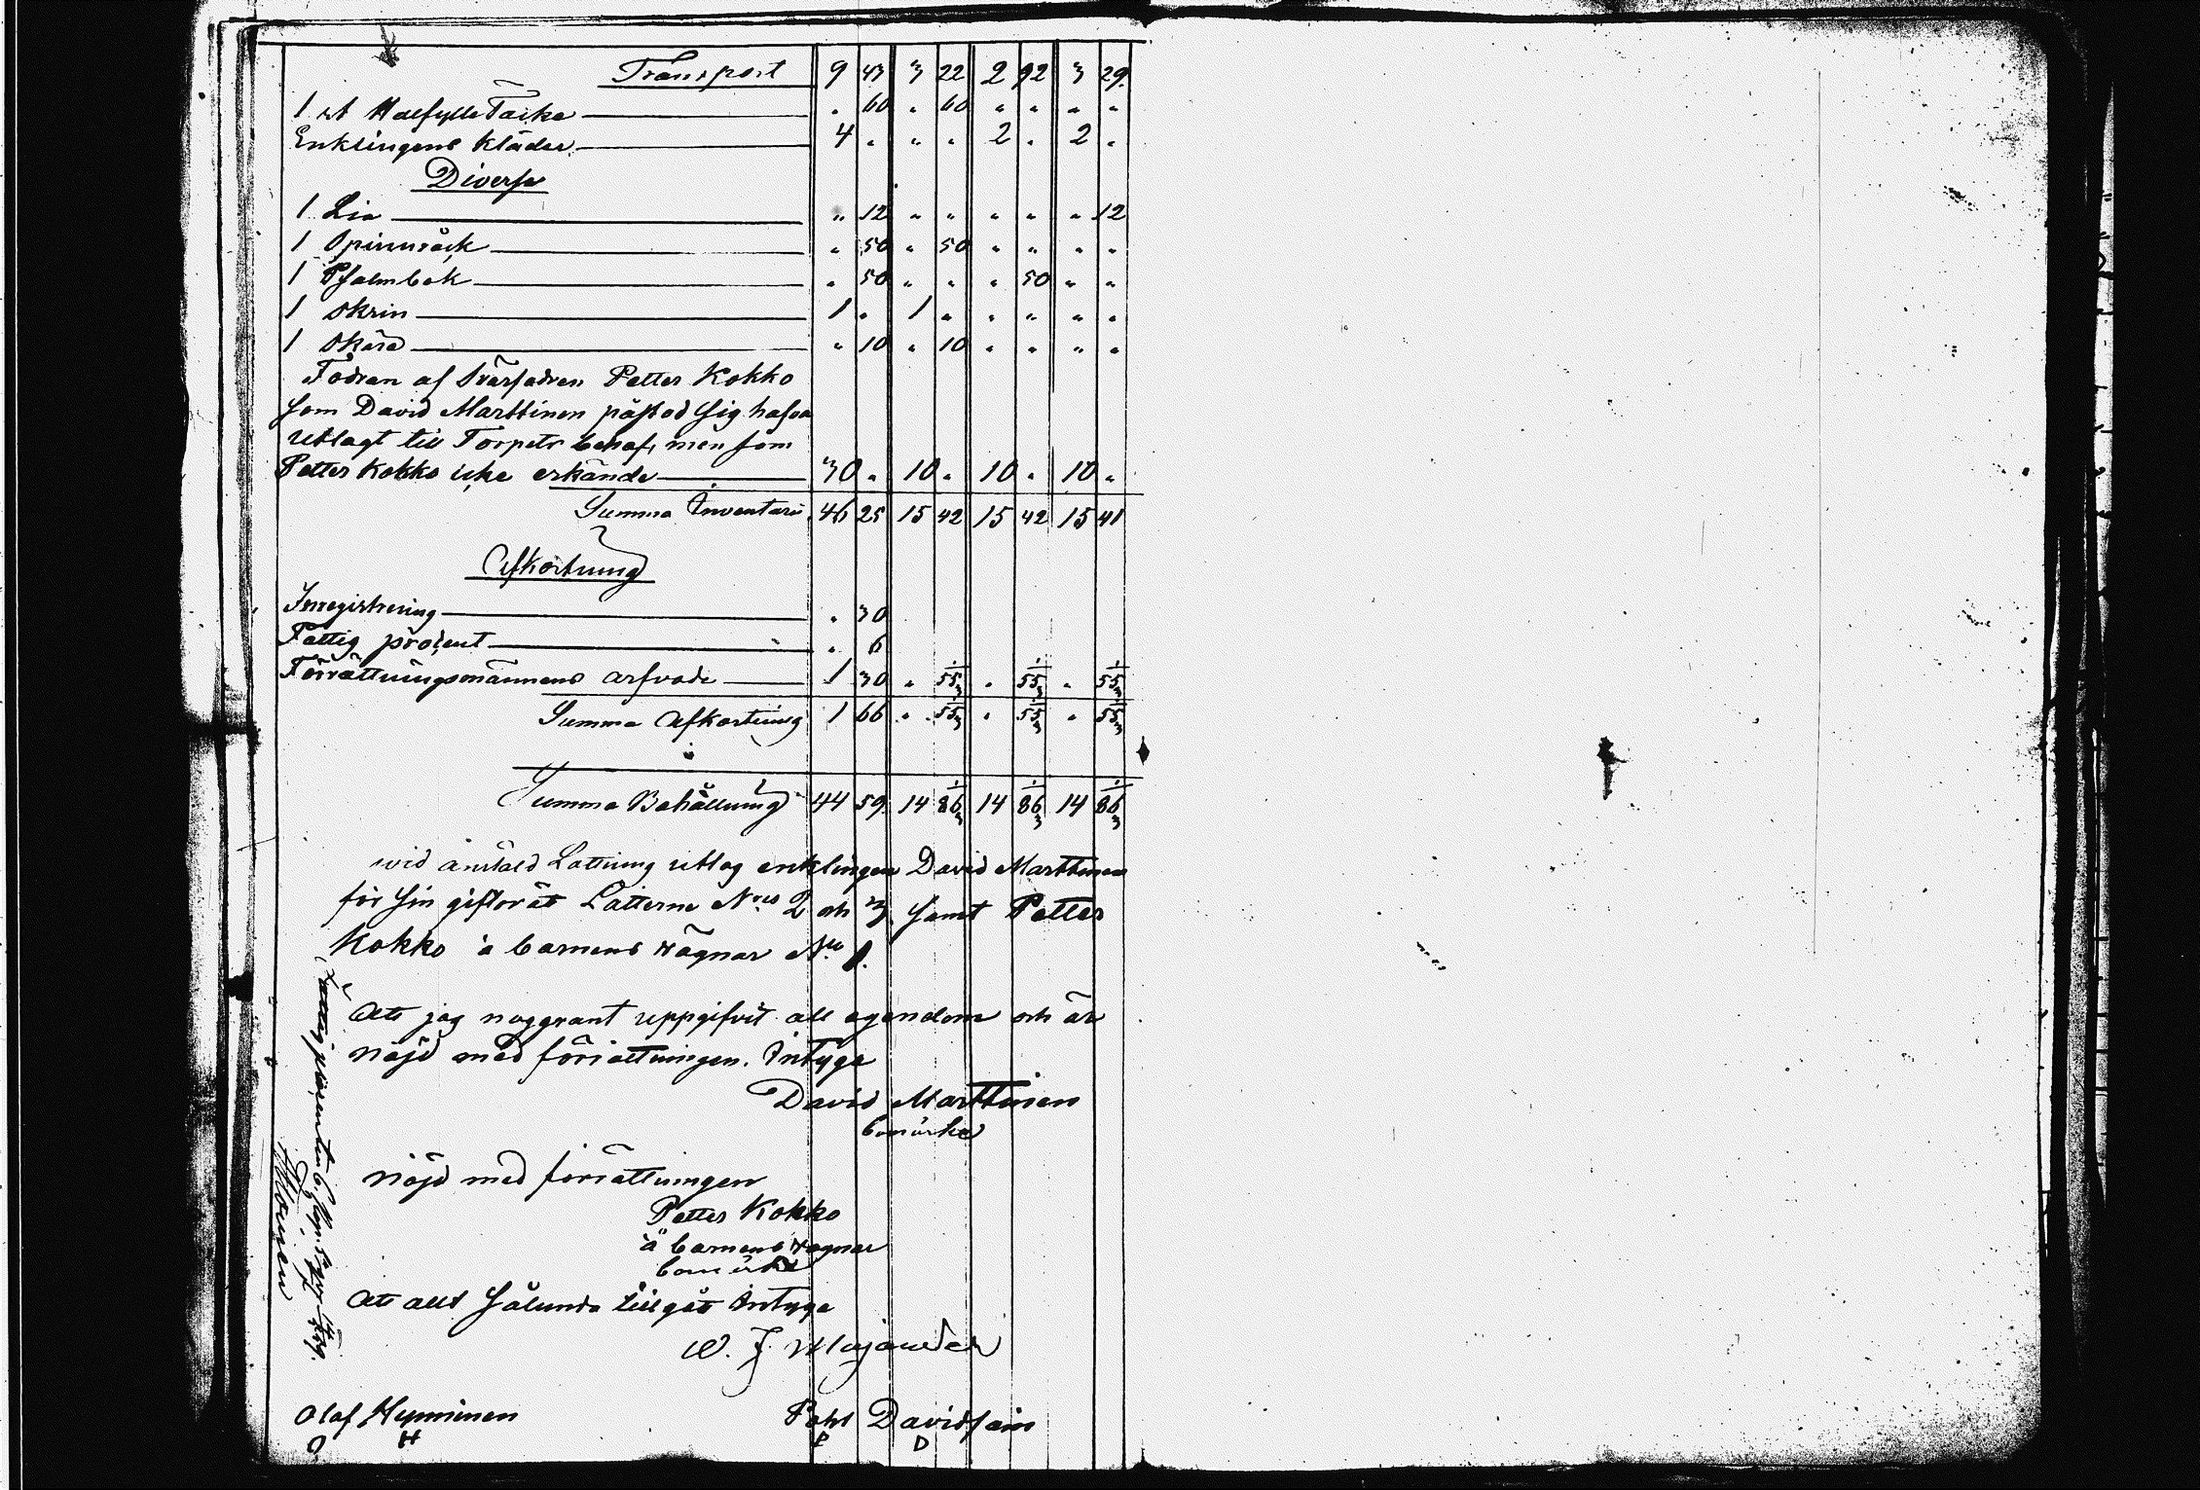 Transport 9 43 3 22 2 92 3 29.
1 st Halfylle Täcke " 60 " 60 " " " "
Enklingens kläder 4 " " " 2 " 2 "
Diverse
1 Lia " 12 " " " " " 12
1 Spinnråck " 50 " 50 " " " "
1 Psalmbok " 50 " " " 50 " "
1 Skrin 1 " 1 " " " " "
1 Skära " 10 " 10 " " " "
Fodran af Svärfadren Petter Kokko
som David Marttinen påstod sig hafva
utlagt till Torpets behof, men som
Petter Kokko icke erkände 30 " 10 " 10 " 10 "
Summa Inventarii 46 25 15 42 15 42 15 41
Afkortning
Inregistrering " 30
Fattig procent " 6
Förrättningsmännens arfvode 1 30 " 55 1/3 " 55 1/3 " 55 1/3
Summa Afkortning 1 66 " 55 1/3 " 55 1/3 " 55 1/3
Summa Behållning 44 59 14 86 1/3 14 86 1/3 14 86 1/3
wid anstäld Lottning uttog enklingen David Marttinen
för sin giftorät Lotterne Nris 2 och 3. samt Petter
Kokko å barnens wägnar No 1.
Att jag noggrant uppgifvit all egendom och är
nöjd med förrättningen. Intyga
David Marttinen
bomärke
Nöjd med förrättningen
Petter Kokko
å barnens wägnar
bomärke
Att allt sålunda tillgåt Intyga
O. J. Majander
Olaf Hynninen Pohl Davidsain
O H P D
Fattig procenten 6